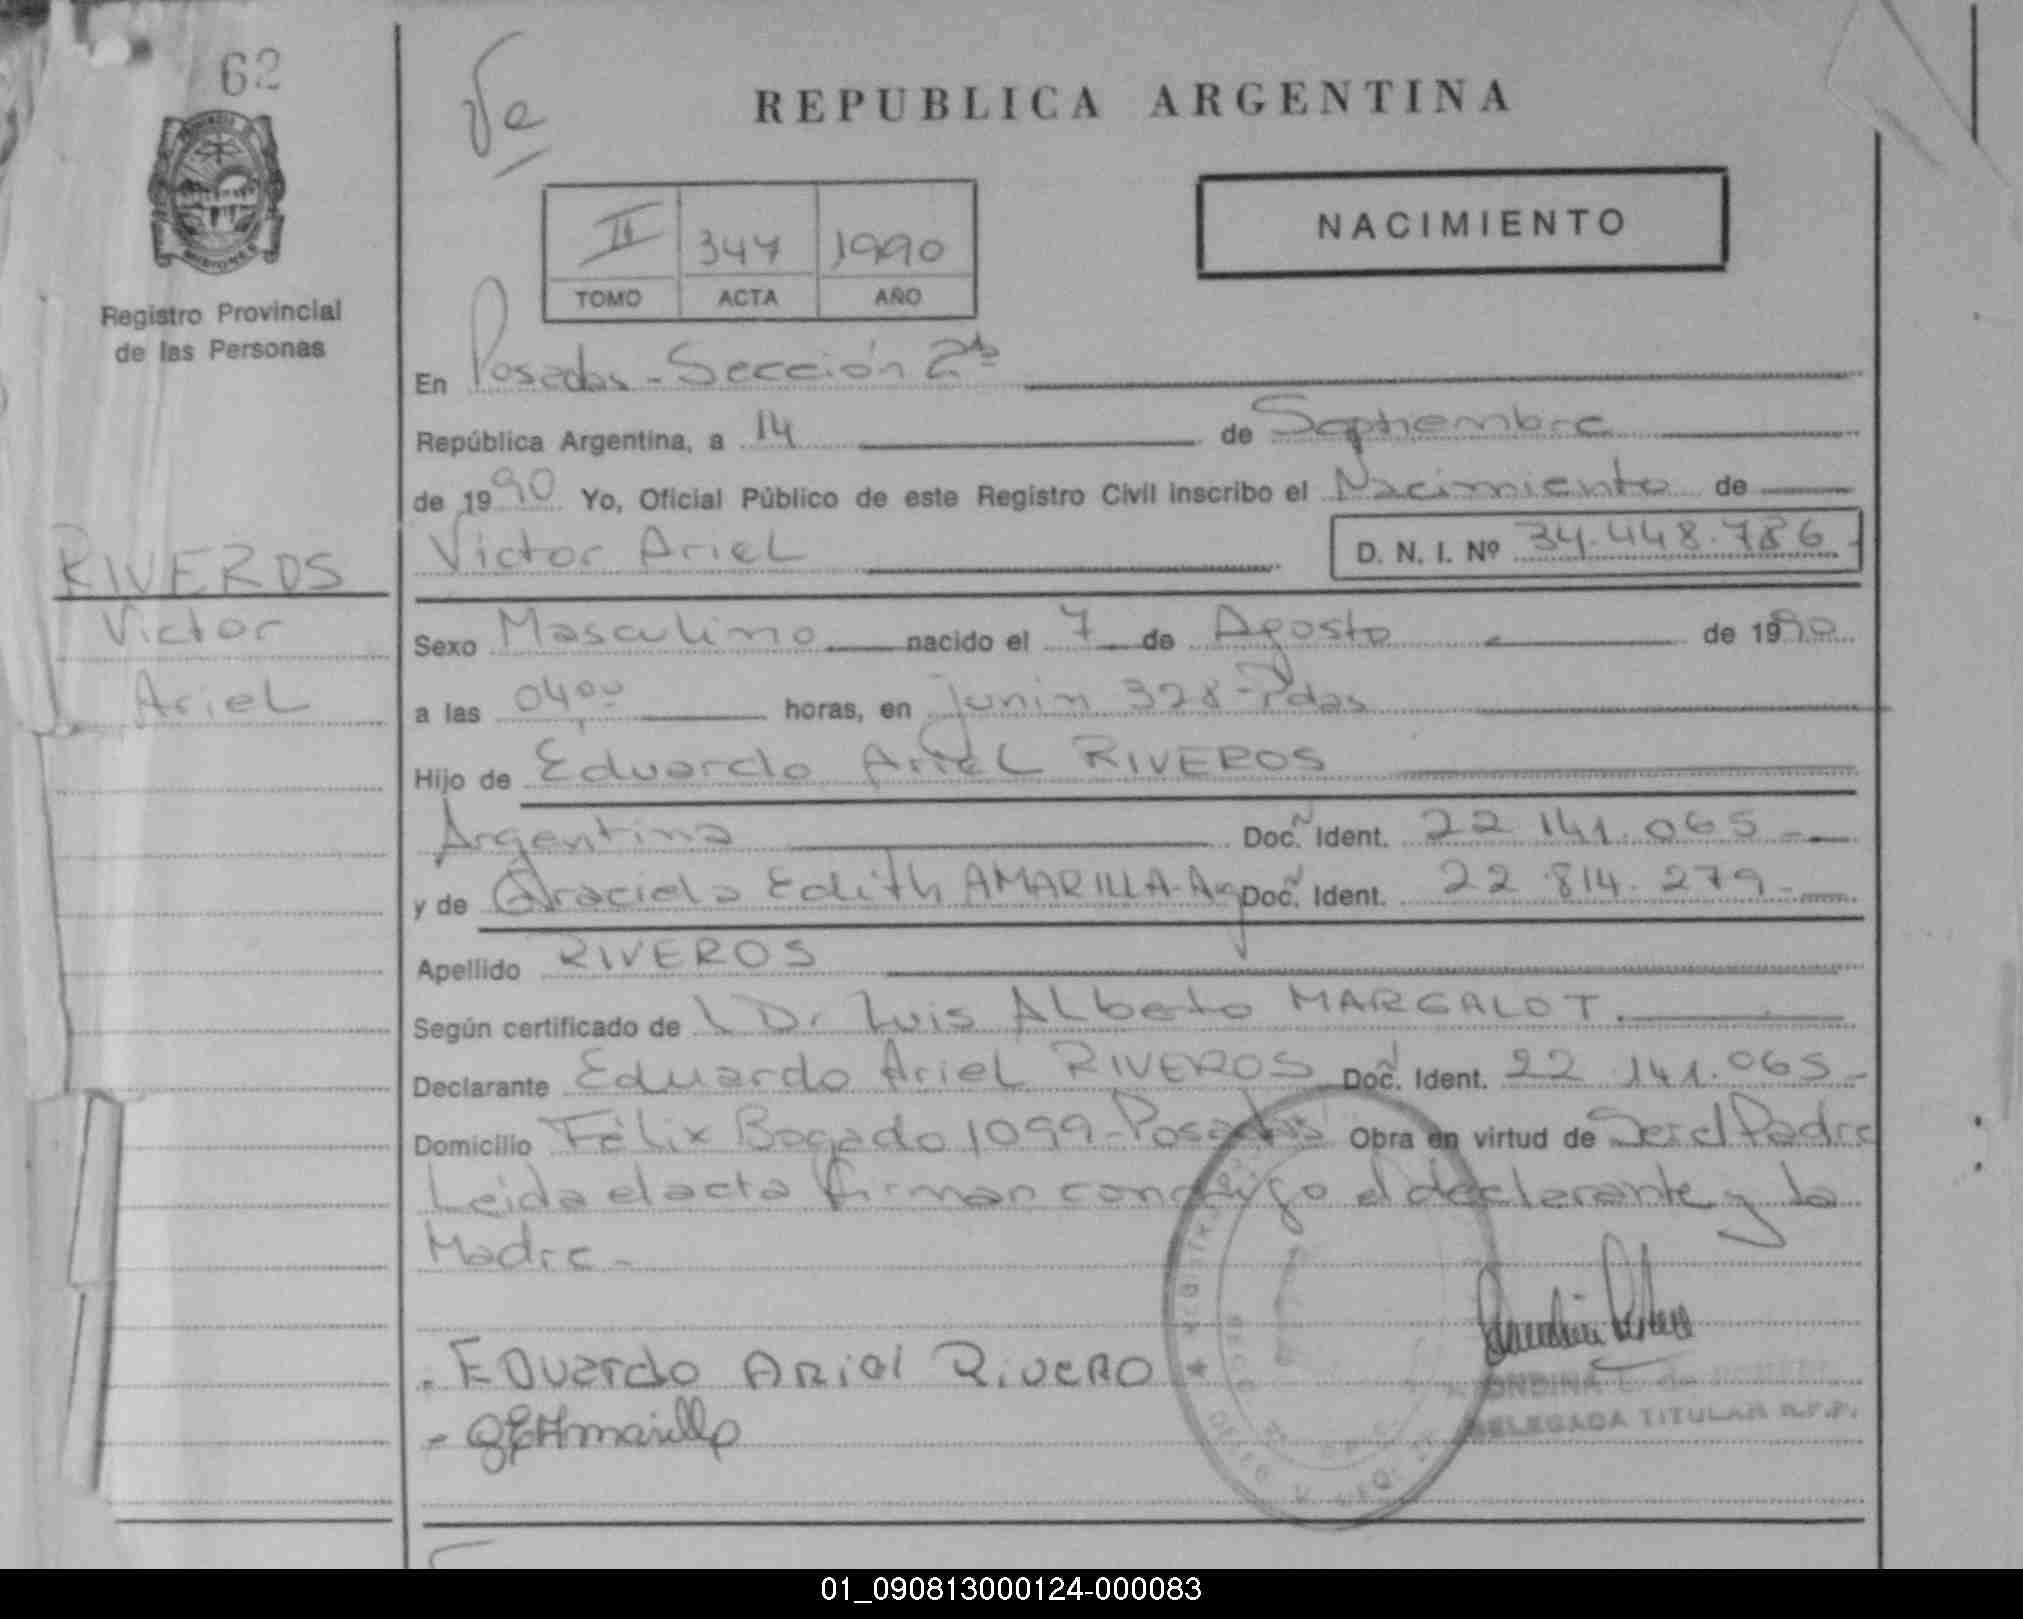 62
Ve
REPUBLICA ARGENTINA
NACIMIENTO
II 347 1990
TOMO ACTA AÑO
Registro Provincial
de las Personas
En Posadas - Sección 2ª
República Argentina, a 14 de Septiembre
de 1990 Yo, Oficial Público de este Registro Civil inscribo el Nacimiento de
RIVEROS
Victor Ariel D. N. I. Nº 34.448.786.
Victor
Sexo Masculino nacido el 7 de Agosto de 1990
Ariel
a las 04⁰⁰ horas, en Junin 328-Pdas
Hijo de Eduardo Ariel RIVEROS
Argentina Doc. Ident. 22 141.065-
y de Graciela Edith AMARILLA-Arg Doc. Ident. 22.814.279-
Apellido RIVEROS
Según certificado de Dr Luis Alberto MARGALOT.
Declarante Eduardo Ariel RIVEROS Doc. Ident. 22 141.065-
Domicilio Félix Bogado 1099-Posadas Obra en virtud de Ser el Padre
Leida el acta firman conmigo el declarante y la
Madre-
- EDuardo Ariel Rivero
- GEAmarilla
DELEGADA TITULAR R.P.P.
01_090813000124-000083